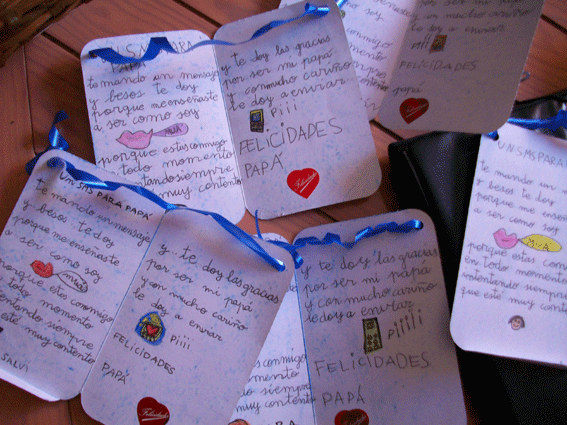 UN SMS PARA
PAPÁ
te mando un mensaje
y besos te doy
porque me enseñaste
a ser como soy
MUÁ
porque estas conmigo
en todo momento
intentando siempre
muy contento
y te doy las gracias
por ser mi papá
y con mucho cariño
te doy a enviar
Piii
FELICIDADES
PAPÁ
Felicidades
con mucho cariño
te doy a enviar
piiii
FELICIDADES
papá
UN SMS PARA
te mando un
y besos te
porque me
a ser como
MUÁ
porque estas
en todo momento
intentando siempre
que esté muy
UN SMS PARA PAPÁ
te mando un mensaje
y besos te doy
porque me enseñaste
a ser como soy
porque estas conmigo
todo momento
siempre
esté muy contento
SALVI
y te doy las gracias
por ser mi papá
y con mucho cariño
le doy a enviar
Piii
FELICIDADES
PAPÁ
Felicidades
conmigo
siempre
muy contento
y te doy las gracias
por ser mi papá
y con mucho cariño
le doy a enviar
piiiii
FELICIDADES
PAPÁ